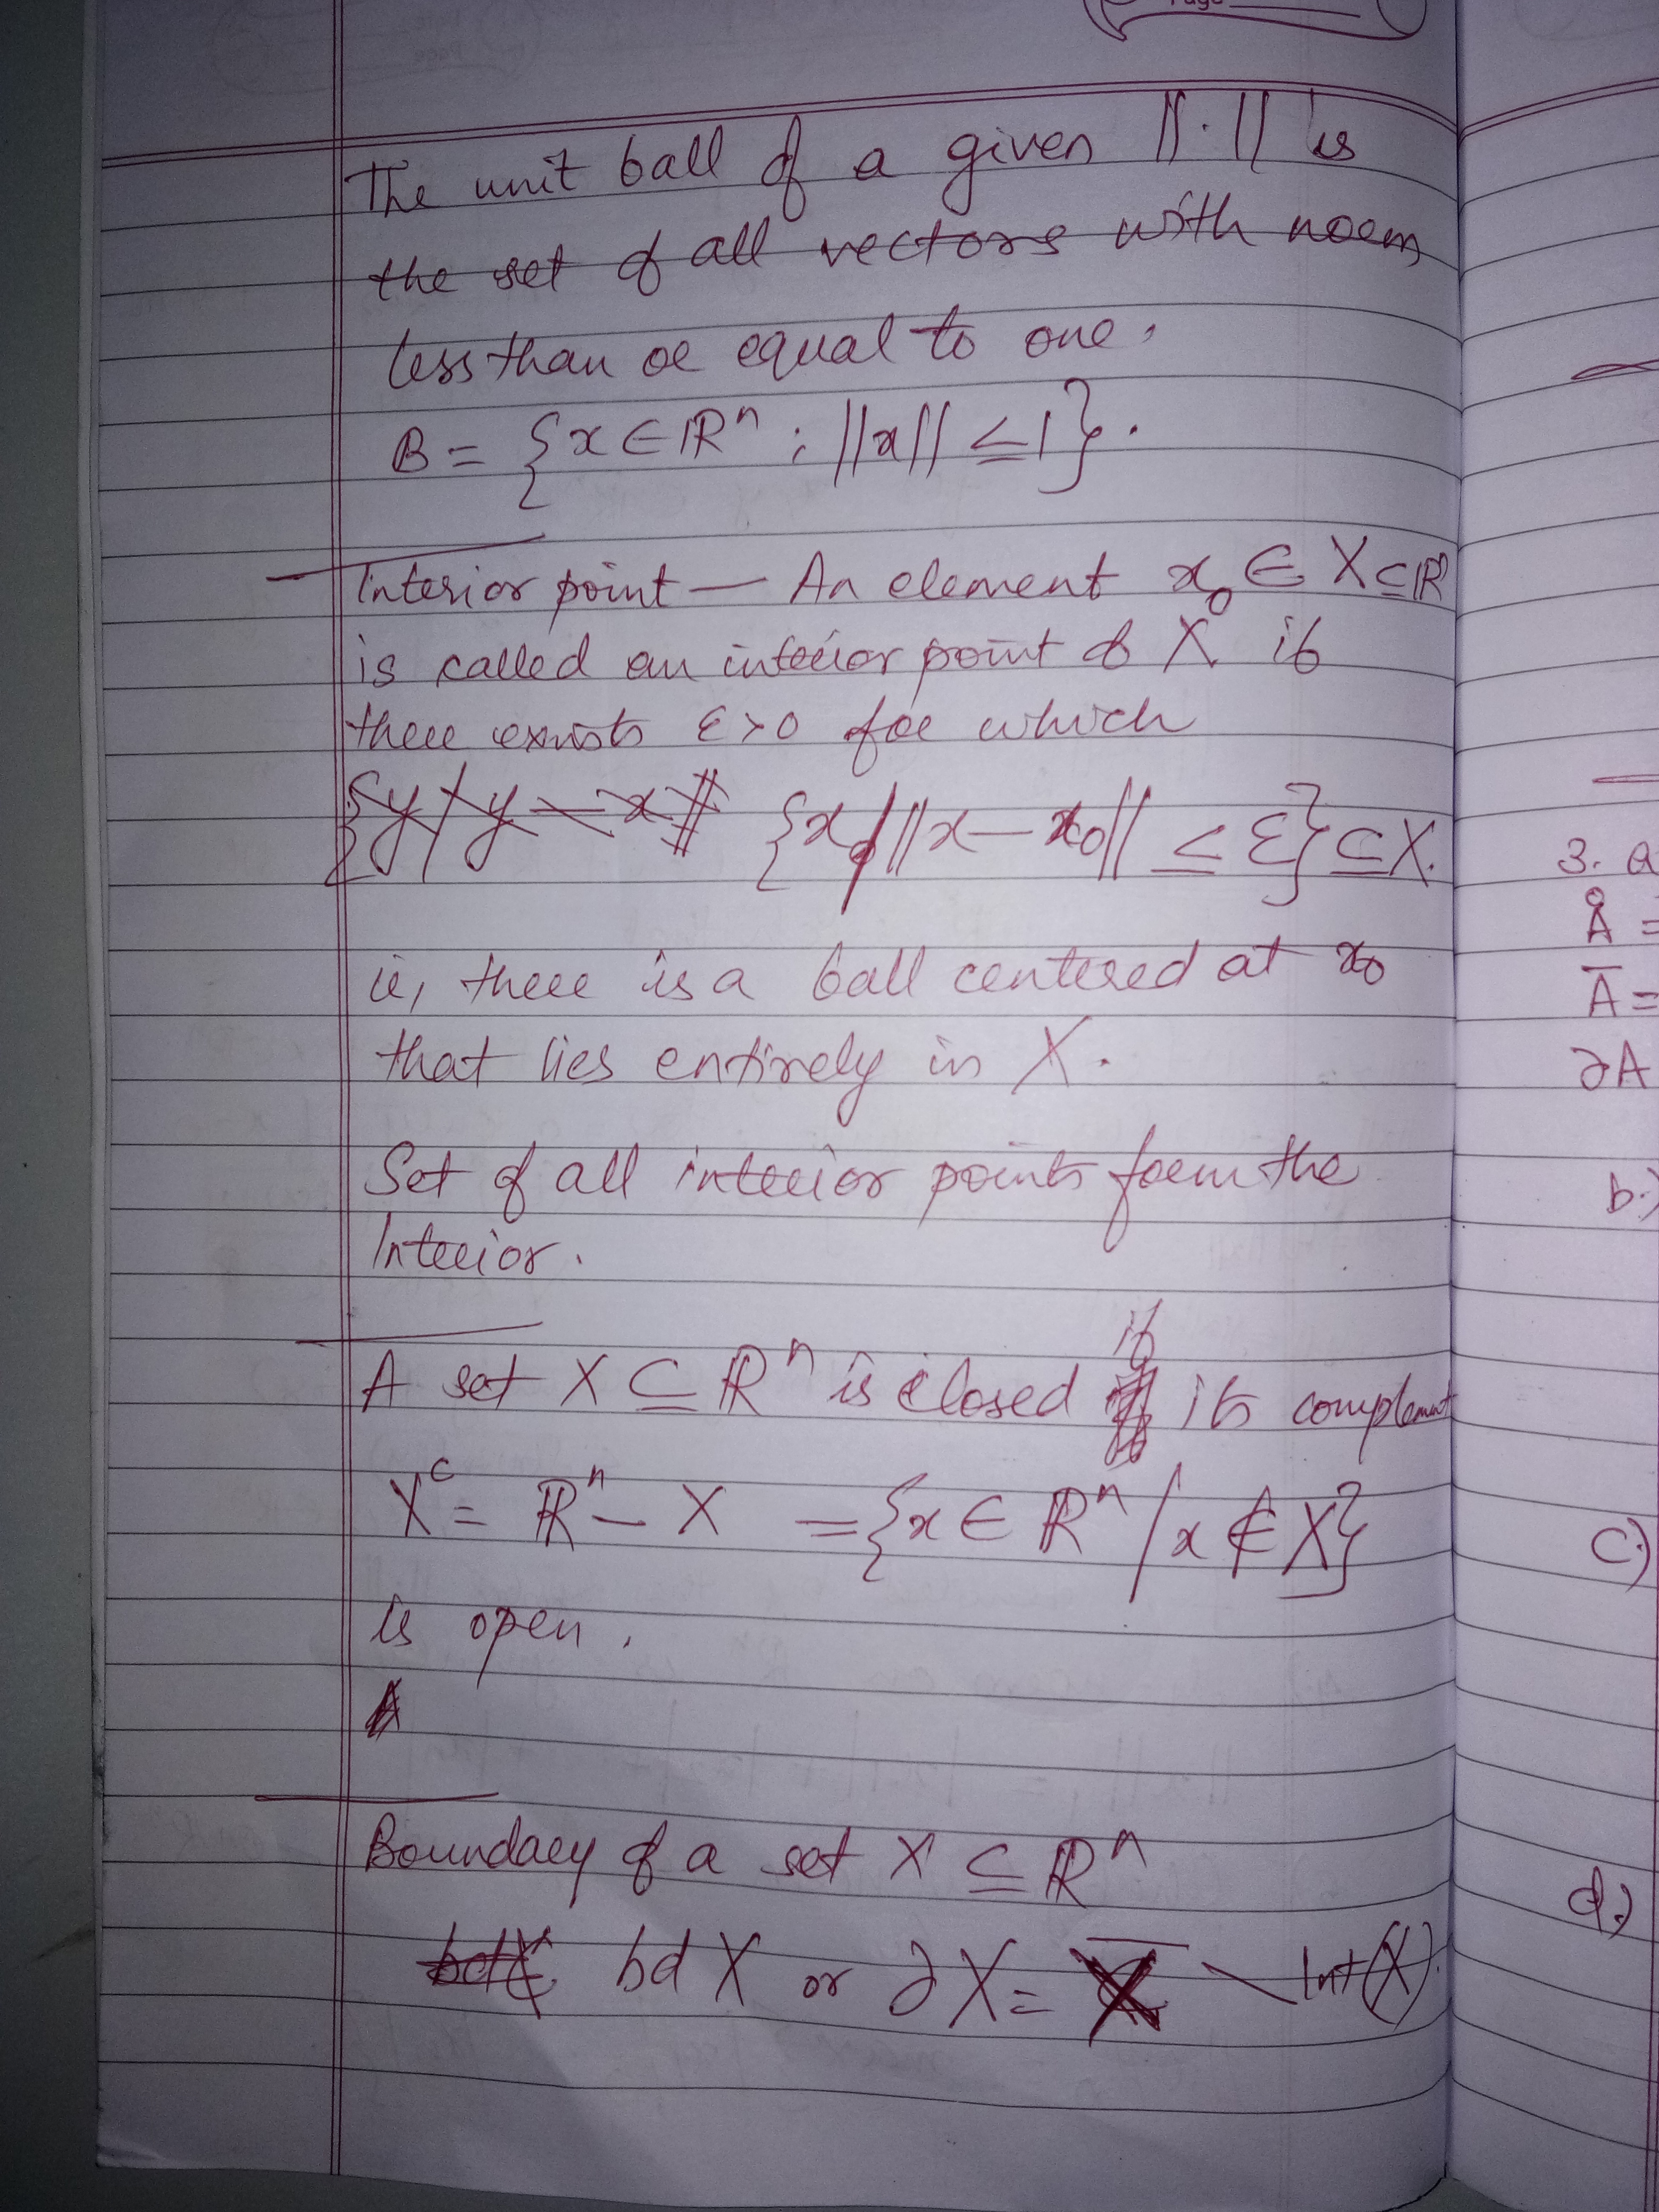 Page
The unit ball of a given ||·|| is
the set of all vectors with norm
less than or equal to one.
B = {x ∈ ℝⁿ ; ||x|| ≤ 1}.
Interior point — An element x₀ ∈ X ⊆ ℝⁿ
is called an interior point of X if
there exists ε>0 for which
{x / ||x - x₀|| ≤ ε} ⊆ X.
ie, there is a ball centered at x₀
that lies entirely in X.
Set of all interior points form the
Interior.
if
A set X ⊆ ℝⁿ is closed its complement
Xᶜ = ℝⁿ - X = {x ∈ ℝⁿ / x ∉ X}
is open.
Boundary of a set X ⊆ ℝⁿ
bd X or ∂X = X̅ \ Int(X).
3. a
Å =
A̅ =
∂A
b.)
c.)
d.)